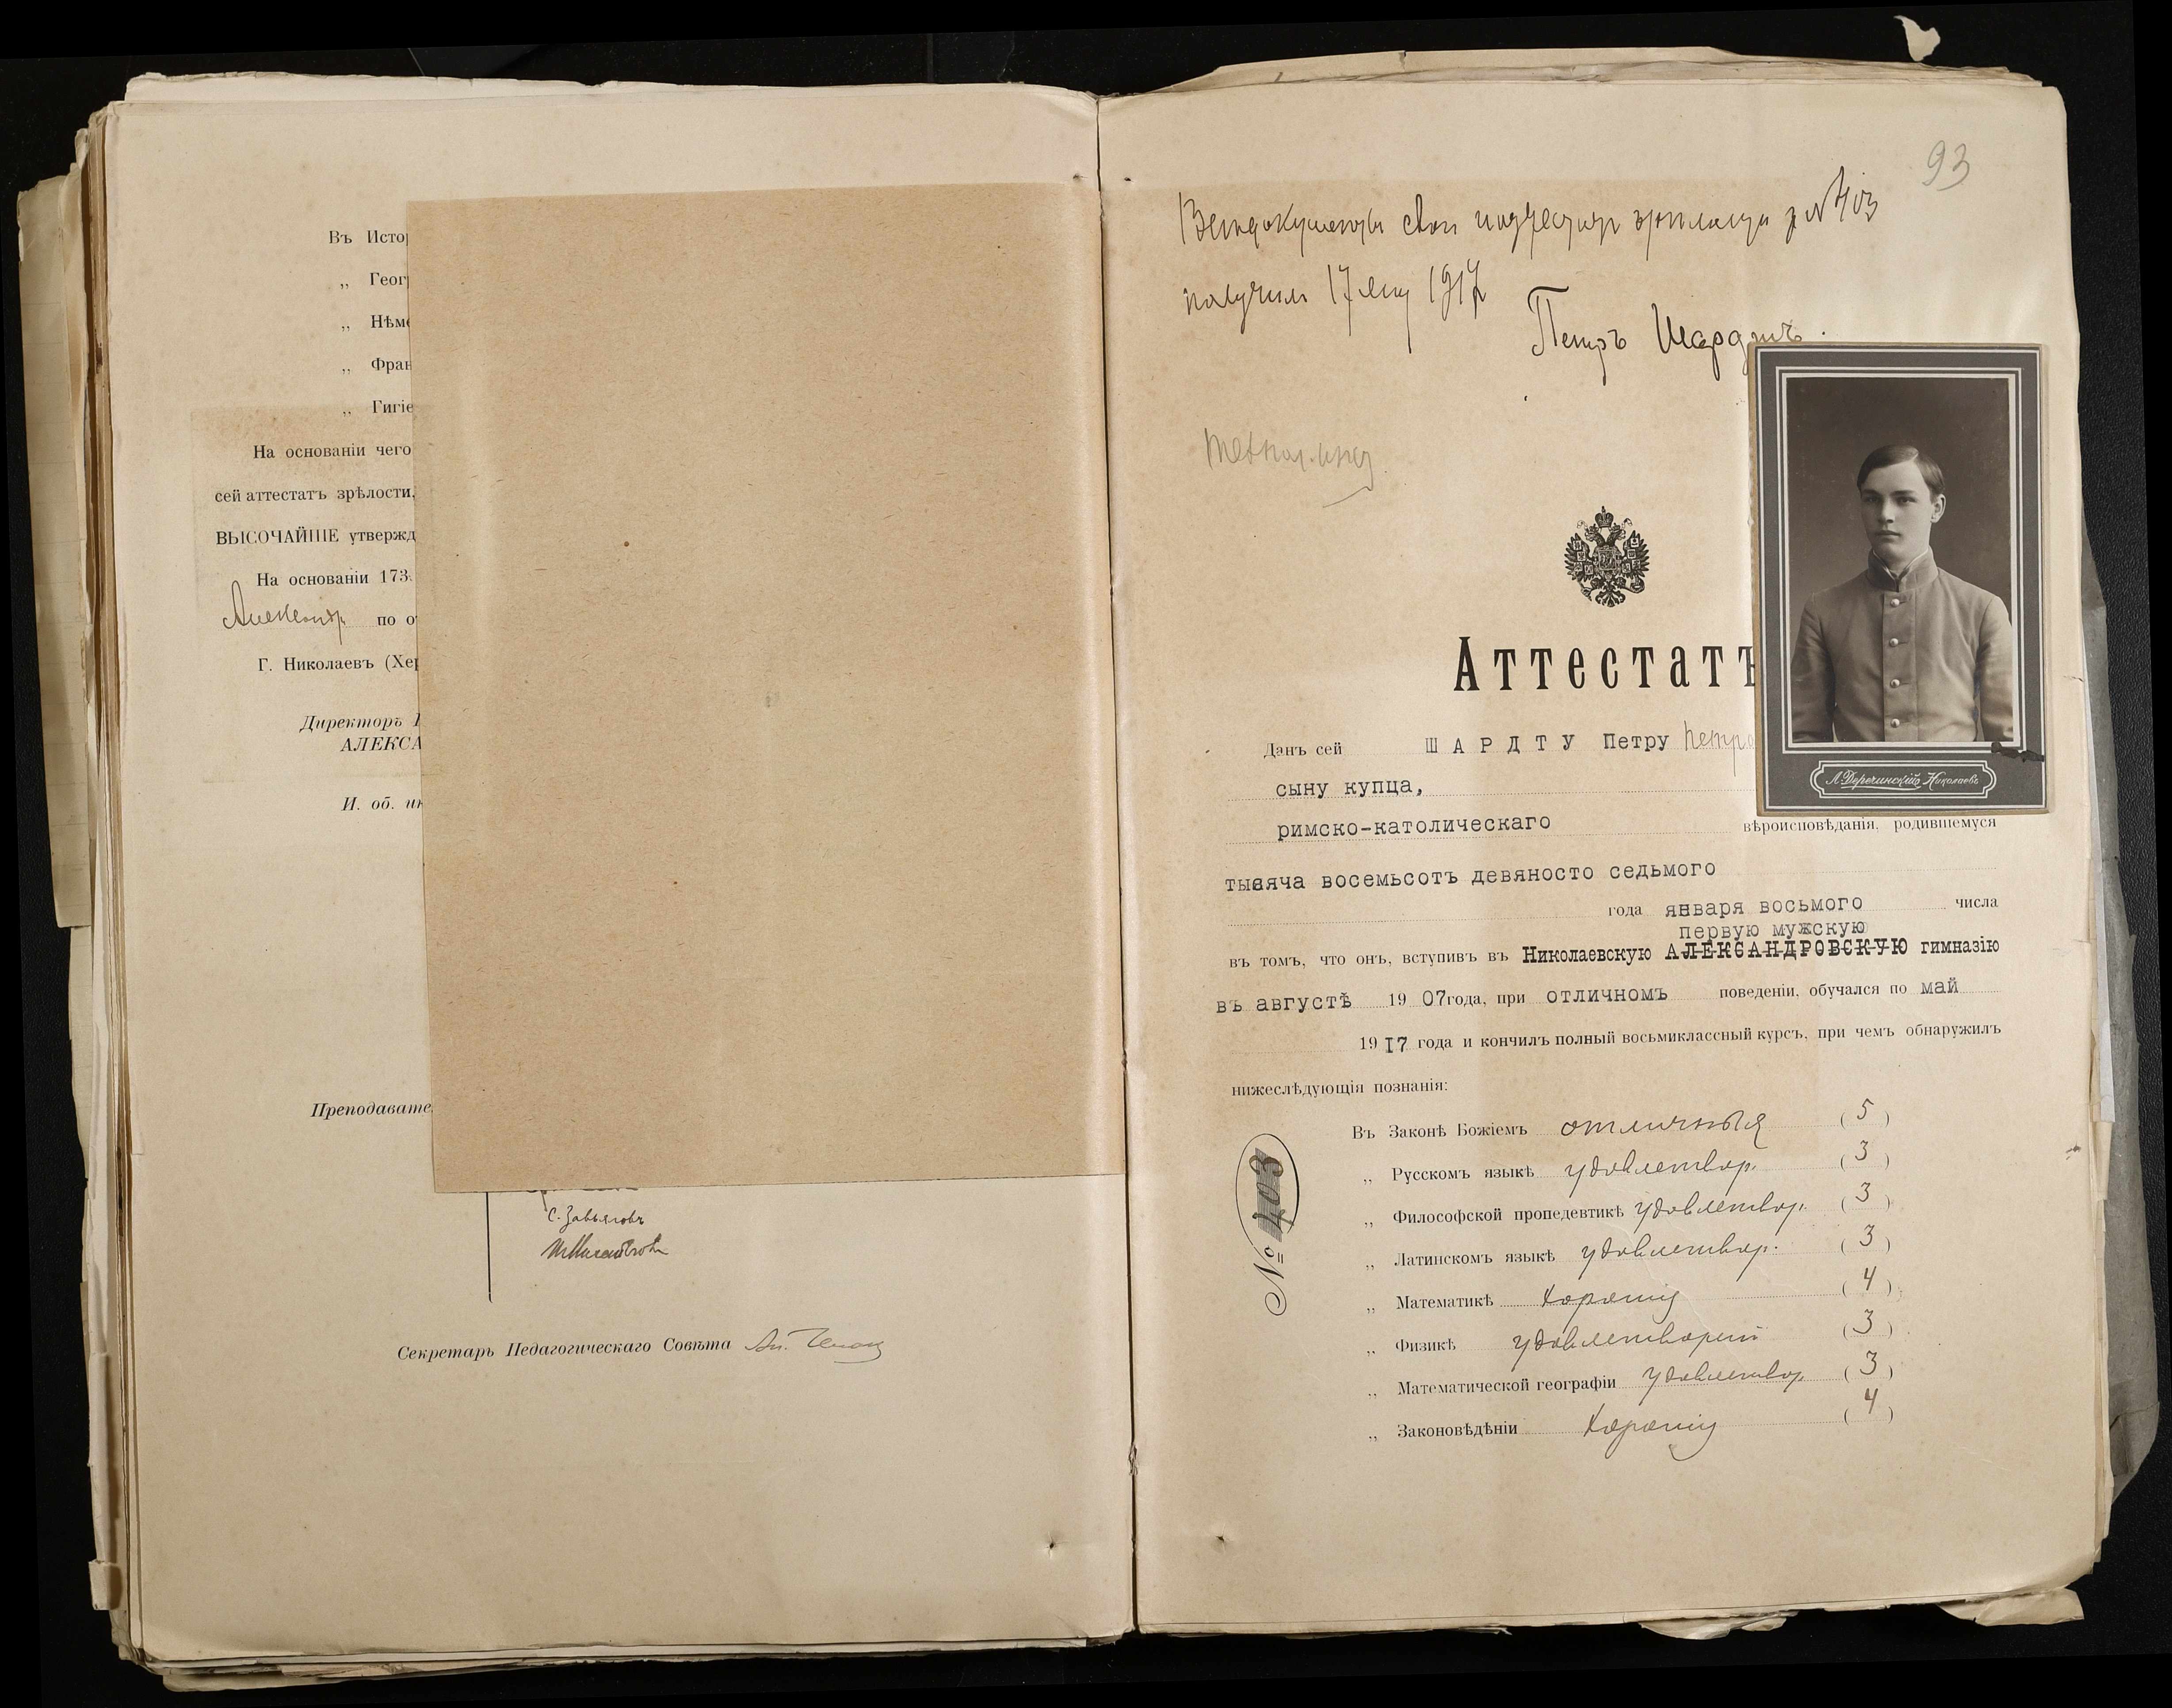 Въ Исто
„ Геог
„ Нѣме
„ Фран
„ Гигіе
На основаніи чего
сей аттестатъ зрѣлости,
ВЫСОЧАЙШЕ утвержд
На основаніи 173
Александръ по о
Г. Николаевъ (Хер
Директоръ
АЛЕКСА
И. об. ин
Преподавате
С. Завьяловъ
Секретарь Педагогическаго Совѣта
93
№ 403
получилъ 17 1917
Петръ Шардтъ.
Аттестатъ
Данъ сей ШАРДТУ Петру Петро
сыну купца,
римско-католическаго вѣроисповѣданія, родившемуся
тысяча восемьсотъ девяносто седьмого
года января восьмого числа
первую мужскую
въ томъ, что онъ, вступивъ въ Николаевскую АЛЕКСАНДРОВСКУЮ гимназію
въ августѣ 19 07 года, при отличномъ поведеніи, обучался по май
19 I7 года и кончилъ полный восьмиклассный курсъ, при чемъ обнаружилъ
нижеслѣдующія познанія:
Въ Законѣ Божіемъ отличныя (5)
„ Русскомъ языкѣ удовлетвор. (3)
„ Философской пропедевтикѣ удовлетвор. (3)
„ Латинскомъ языкѣ удовлетвор. (3)
„ Математикѣ хорошія (4)
„ Физикѣ удовлетворит (3)
„ Математической географіи удовлетвор. (3)
„ Законовѣдѣніи хорошія (4)
№ 403
Л. Деречинскій Николаевъ